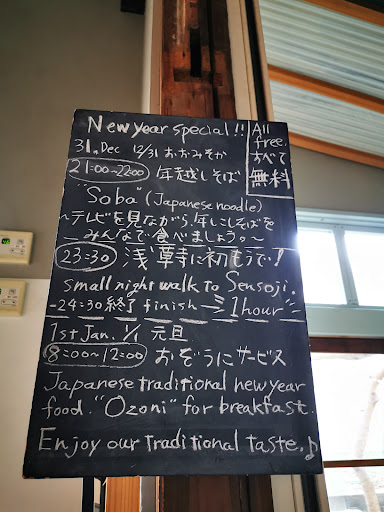 New year special!!
All free.
すべて
無料
31. Dec 12/31 おおみそか
21:00~22:00 年越しそば
"Soba" (Japanese noodle)
~テレビを見ながら、年こしそばを
みんなで食べましょう。~
23:30 浅草寺に初もうで!
small night walk to Sensoji.
-24:30 終了 finish 1hour
1st Jan. 1/1 元旦
8:00~12:00 おぞうにサービス
Japanese traditional new year
food. "Ozoni" for breakfast.
Enjoy our traditional taste.♪